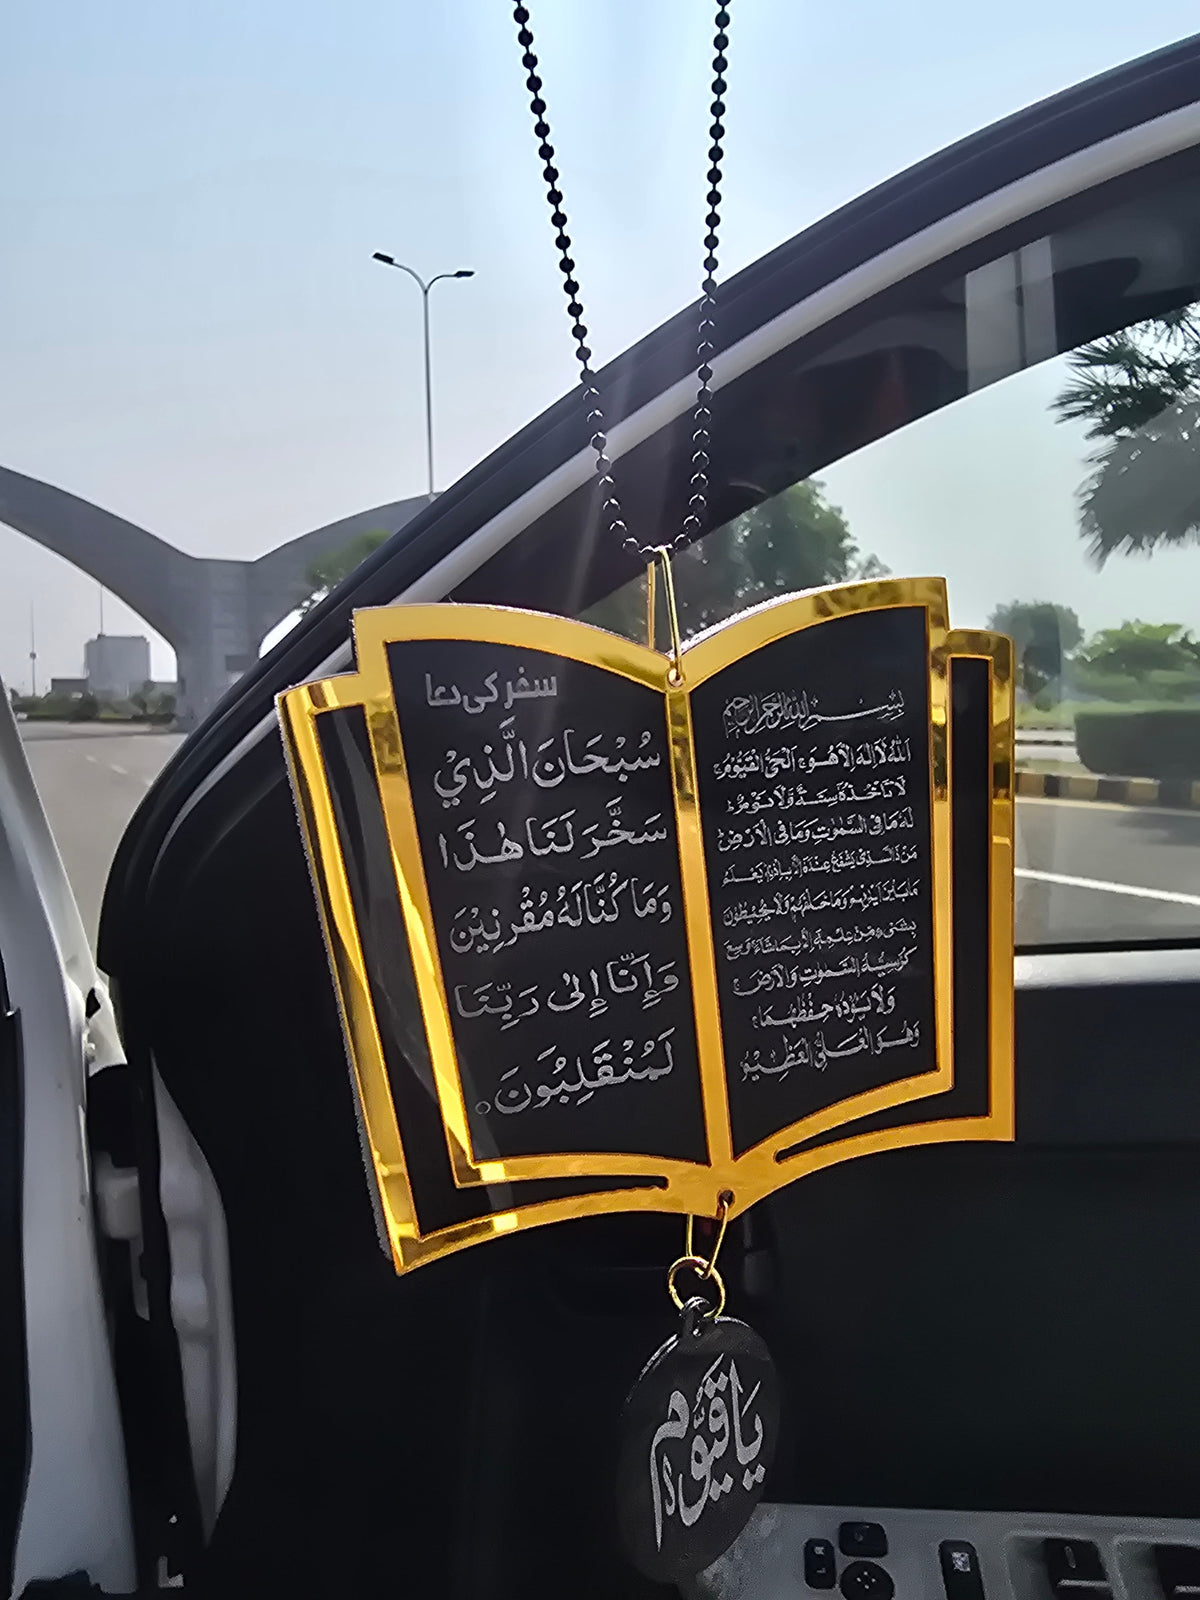 بِسْمِ اللهِ الرَّحْمٰنِ الرَّحِيْمِ
اَللهُ لَا اِلٰهَ اِلَّا هُوَ ۚ اَلْحَىُّ الْقَيُّوْمُ ۚ
لَا تَاْخُذُهٗ سِنَةٌ وَّلَا نَوْمٌ ؕ
لَهٗ مَا فِى السَّمٰوٰتِ وَمَا فِى الْاَرْضِ ؕ
مَنْ ذَا الَّذِىْ يَشْفَعُ عِنْدَهٗۤ اِلَّا بِاِذْنِهٖ ؕ يَعْلَمُ
مَا بَيْنَ اَيْدِيْهِمْ وَمَا خَلْفَهُمْ ۚ وَلَا يُحِيْطُوْنَ
بِشَىْءٍ مِّنْ عِلْمِهٖۤ اِلَّا بِمَا شَآءَ ۚ وَسِعَ
كُرْسِيُّهُ السَّمٰوٰتِ وَالْاَرْضَ ۚ
وَلَا يَئُوْدُهٗ حِفْظُهُمَا ۚ
وَهُوَ الْعَلِىُّ الْعَظِيْمُ
سفر کی دعا
سُبْحَانَ الَّذِيْ
سَخَّرَ لَنَا هٰذَا
وَمَا كُنَّا لَهُ مُقْرِنِيْنَ
وَإِنَّا إِلىٰ رَبِّنَا
لَمُنْقَلِبُوْنَ۝
يَا قَيُّوْمُ